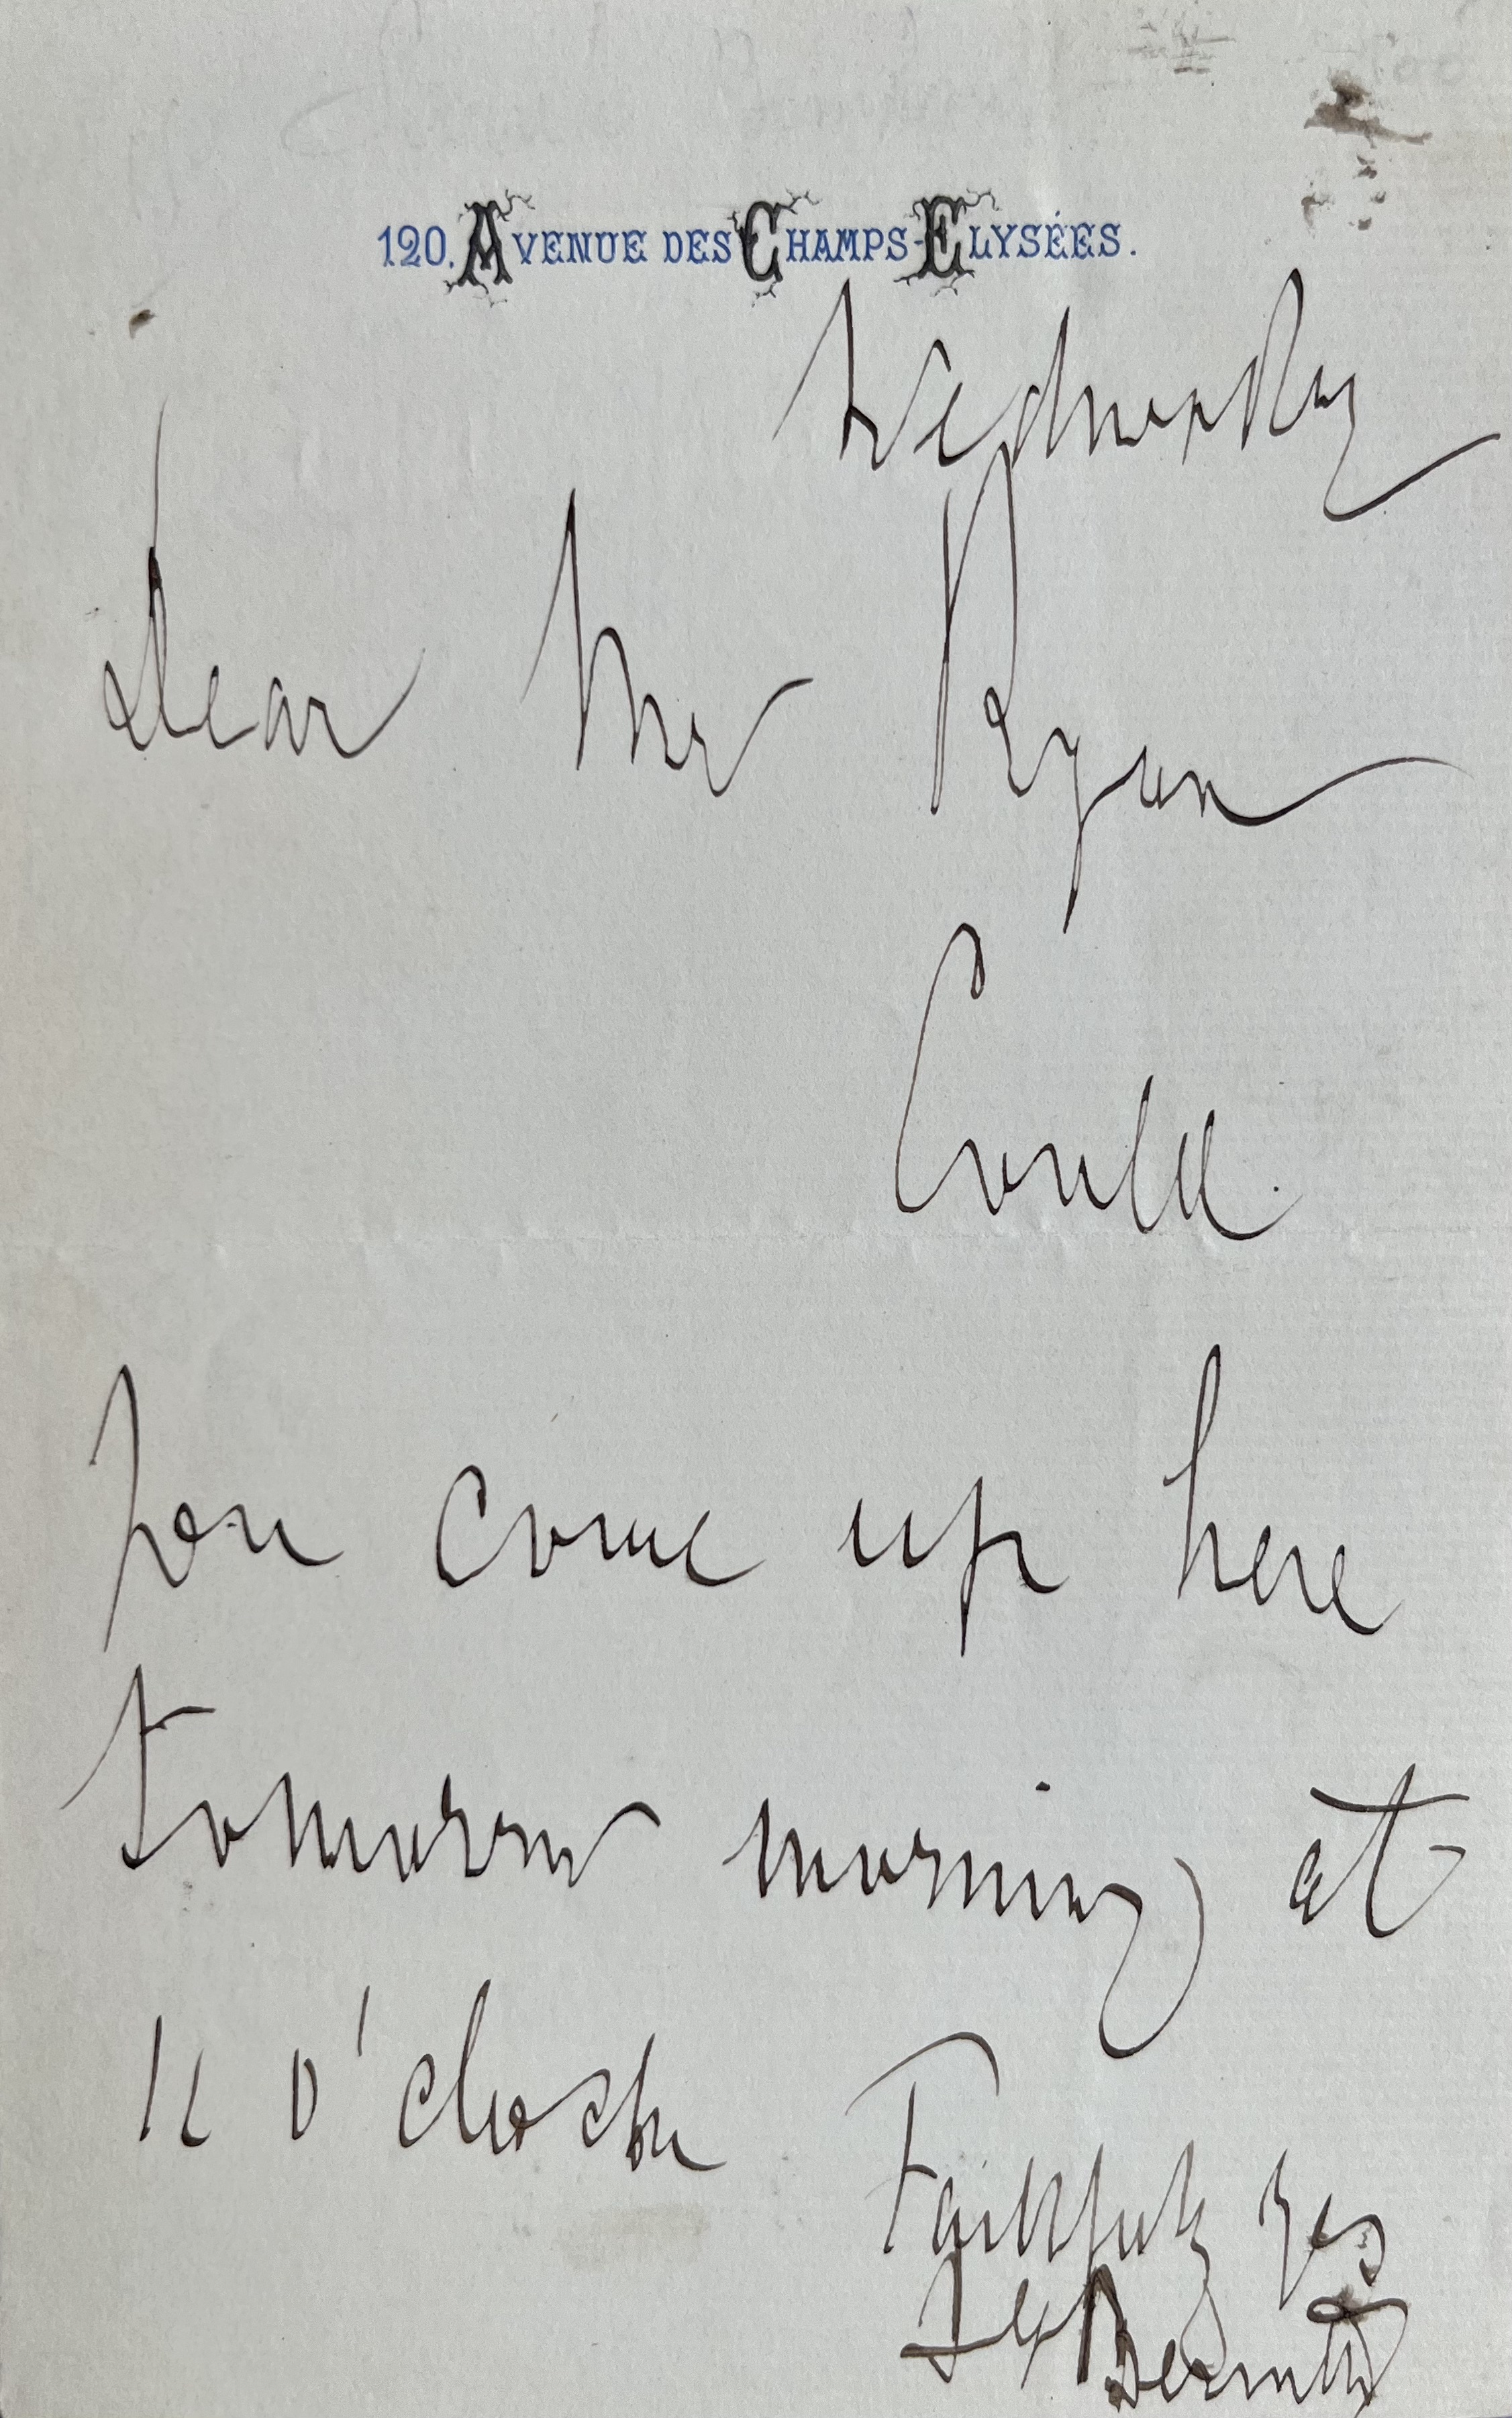 120. AVENUE DES CHAMPS-ELYSÉES.
Wednesday
Dear Mr Ryan
Could
you come up here
tomorrow morning at
11 o'clock
Faithfully yrs
J G Bennett